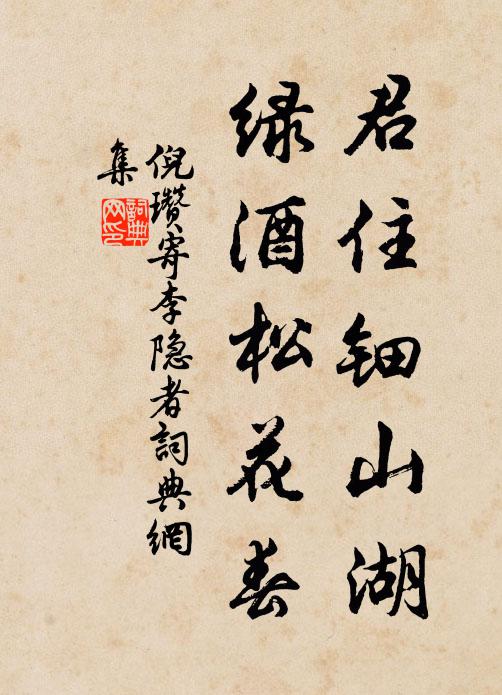 君住钿山湖
绿酒松花春
倪瓒寄李隐者詞典網
集
詞典网印